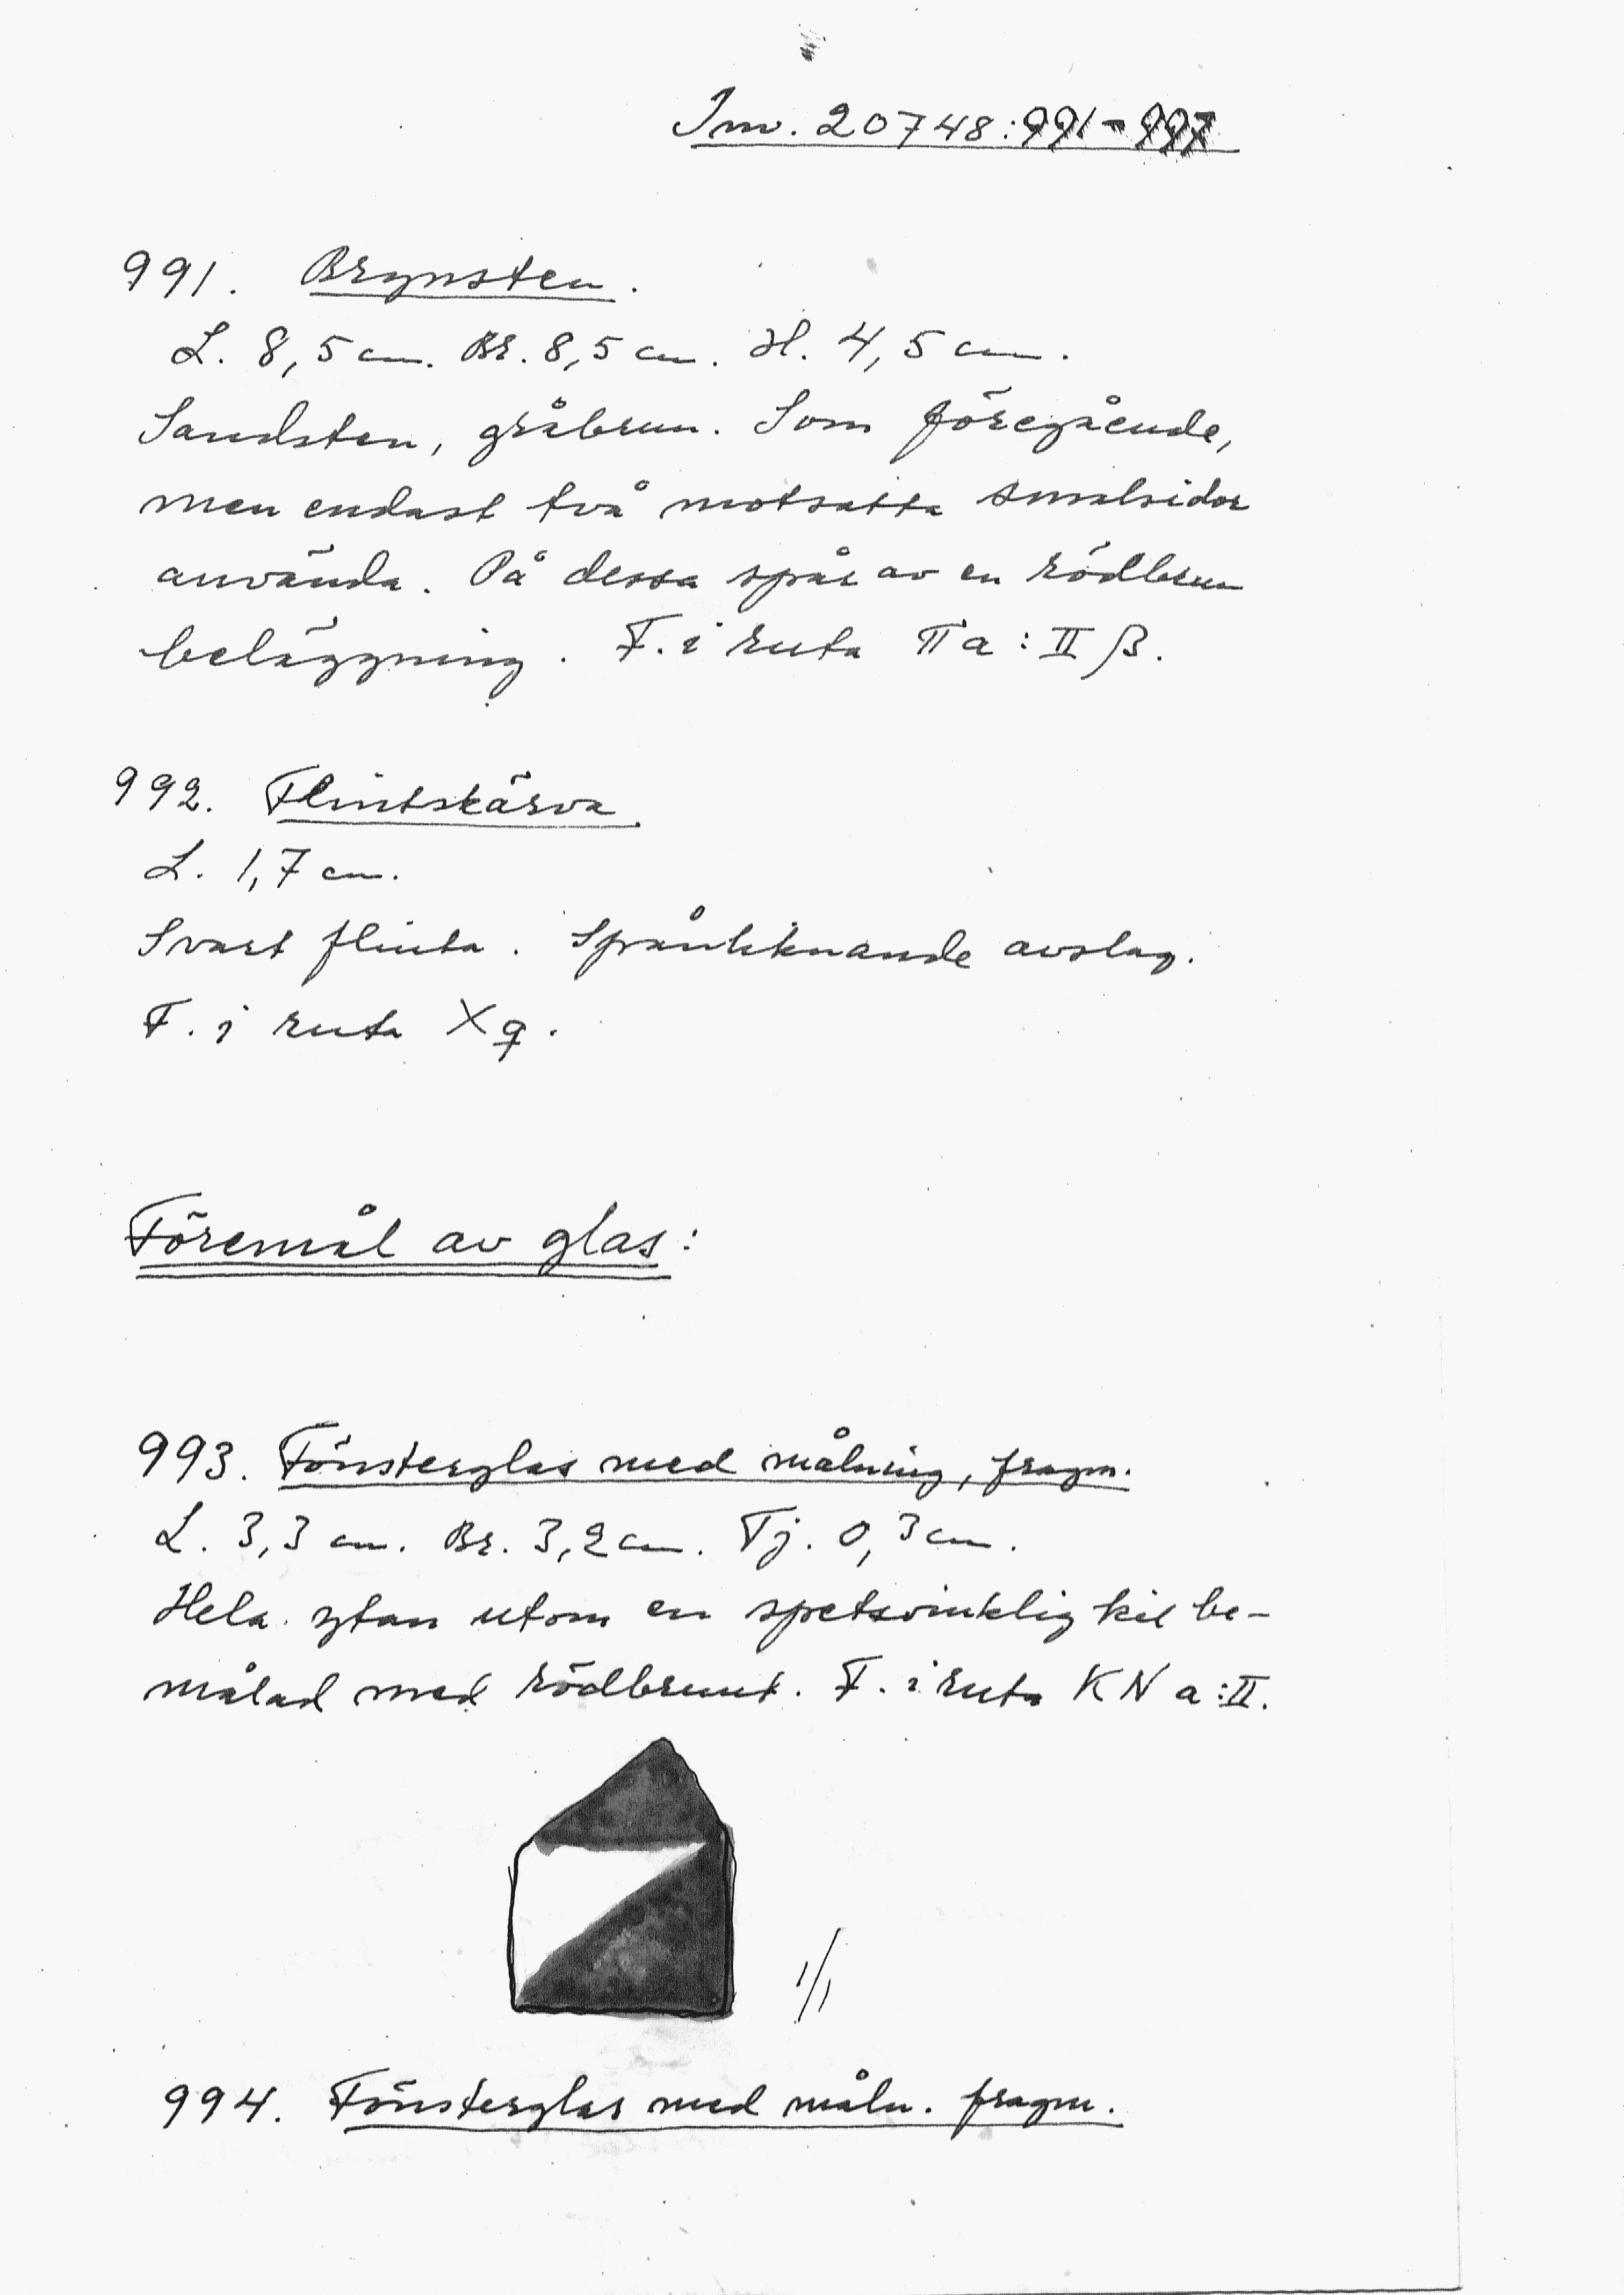 Inv. 20748:991-997
991. Brynsten.
L. 8,5 cm. Br. 8,5 cm. H. 4,5 cm.
Sandsten, gråbrun. Som föregående,
men endast två motsatta smalsidor
använda. På dessa spår av en rödbrun
beläggning. F. i ruta πa:IIβ.
992. Flintskärva.
L. 1,7 cm.
Svart flinta. Spånliknande avslag.
F. i ruta Xq.
Föremål av glas:
993. Fönsterglas med målning, fragm.
L. 3,3 cm. Br. 3,2 cm. Tj. 0,3 cm.
Hela ytan utom en spetsvinklig kil be-
målad med rödbrunt. F. i ruta KN a:II.
1/1
994. Fönsterglas med måln. fragm.